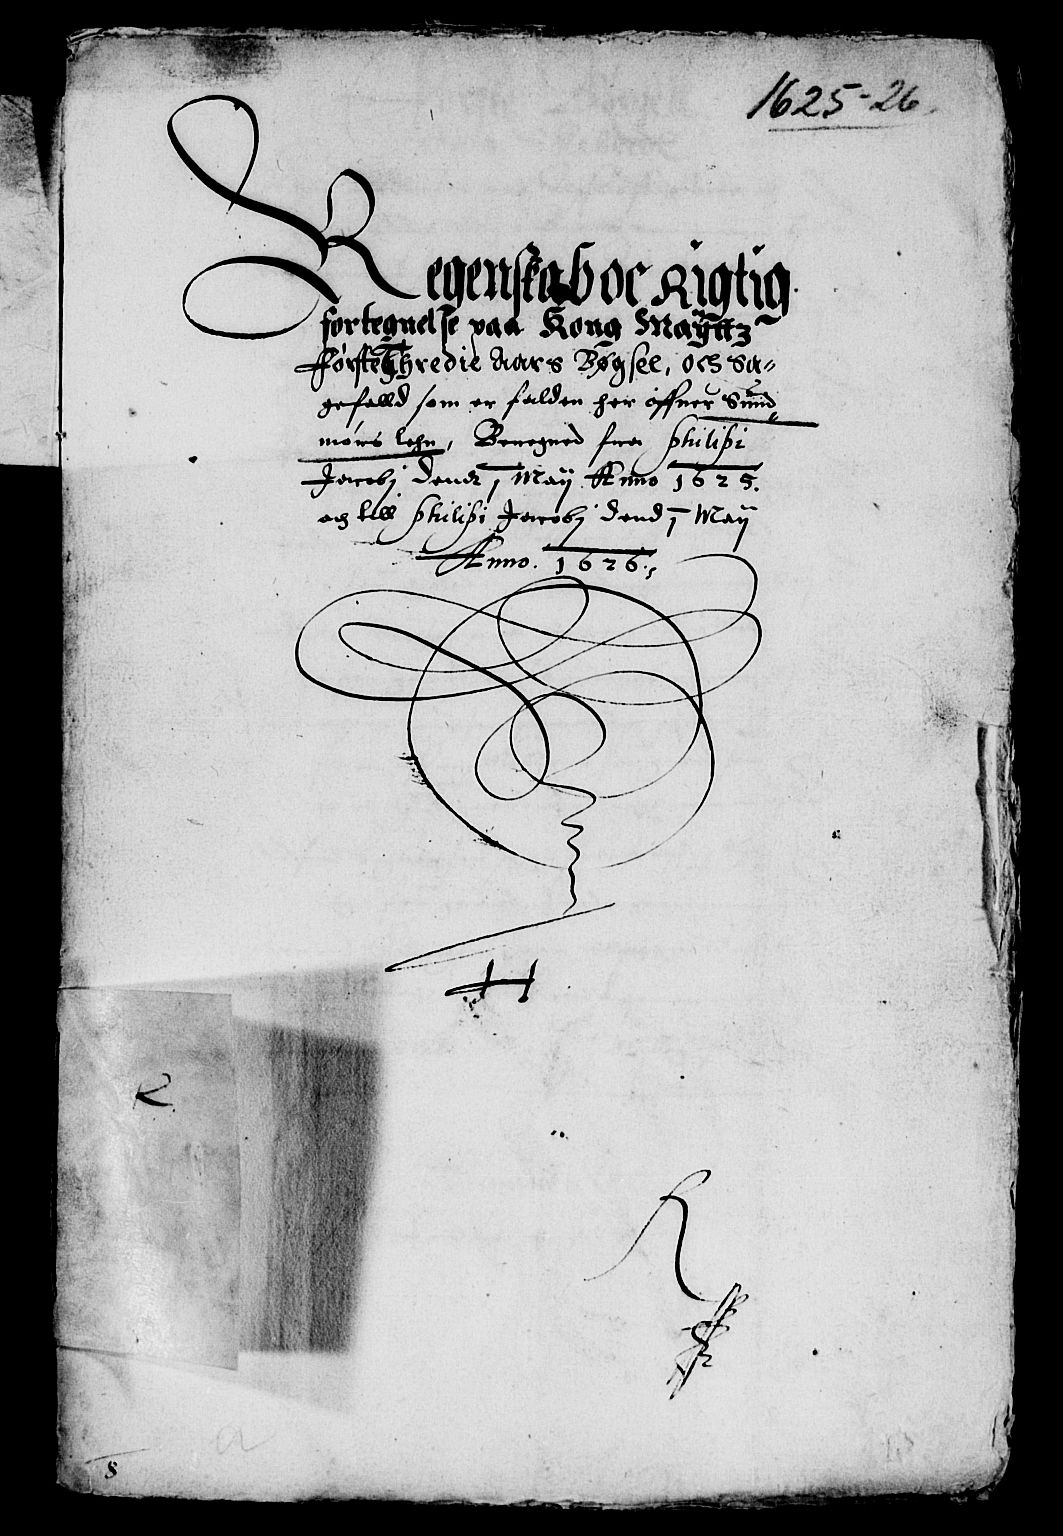 1625-26.
Regenskab oc Rigtig
fortegnelse paa Kong Maÿttz
første Thredie Aars Bøgsel, och Sa-
gefalld som er falden her offuer Sund
mørs lehn, Beregned fraa philipi
Jacobj dend 1 Maÿ Anno 1625.
och till philipi Jacobj dend 1 Maÿ
Anno. 1626.
H
R
R
8